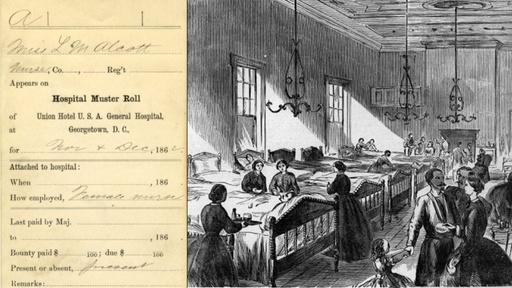 A
Miss L M Alcott
Nurse, Co. , Reg't
Appears on
Hospital Muster Roll
of Union Hotel U. S. A. General Hospital,
at Georgetown, D. C.,
for Nov & Dec, 1862
Attached to hospital:
When , 186
How employed, Female nurse
Last paid by Maj.
to , 186
Bounty paid $ 100; due $ 100
Present or absent, present
Remarks: